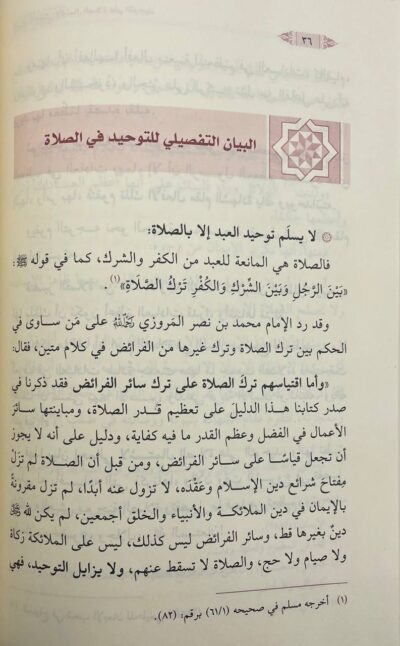 ٣٦
البيان التفصيلي للتوحيد في الصلاة
لا يسلَم توحيد العبد إلا بالصلاة:
فالصلاة هي المانعة للعبد من الكفر والشرك، كما في قوله ﷺ:
«بَيْنَ الرَّجُلِ وَبَيْنَ الشِّرْكِ وَالكُفْرِ تَرْكُ الصَّلَاةِ»(١).
وقد رد الإمام محمد بن نصر المَروزي رَحِمَهُ اللهُ على مَن ساوى في
الحكم بين ترك الصلاة وترك غيرها من الفرائض في كلام متين، فقال:
«وأما اقتياسهم تركَ الصلاة على ترك سائر الفرائض فقد ذكرنا في
صدر كتابنا هذا الدليلَ على تعظيم قدر الصلاة، ومباينتها سائرَ
الأعمال في الفضل وعظم القدر ما فيه كفاية، ودليل على أنه لا يجوز
أن تجعل قياسًا على سائر الفرائض، ومن قبل أن الصلاة لم تزلْ
مِفتاحَ شرائع دين الإسلام وعَقْدَه، لا تزول عنه أبدًا، لم تزل مقرونةً
بالإيمان في دين الملائكة والأنبياء والخلق أجمعين، لم يكن لله ﷻ
دينٌ بغيرها قط، وسائر الفرائض ليس كذلك، ليس على الملائكة زكاة
ولا صيام ولا حج، والصلاة لا تسقط عنهم، ولا يزايل التوحيد، فهي
(١) أخرجه مسلم في صحيحه (٦١/١) برقم: (٨٢).